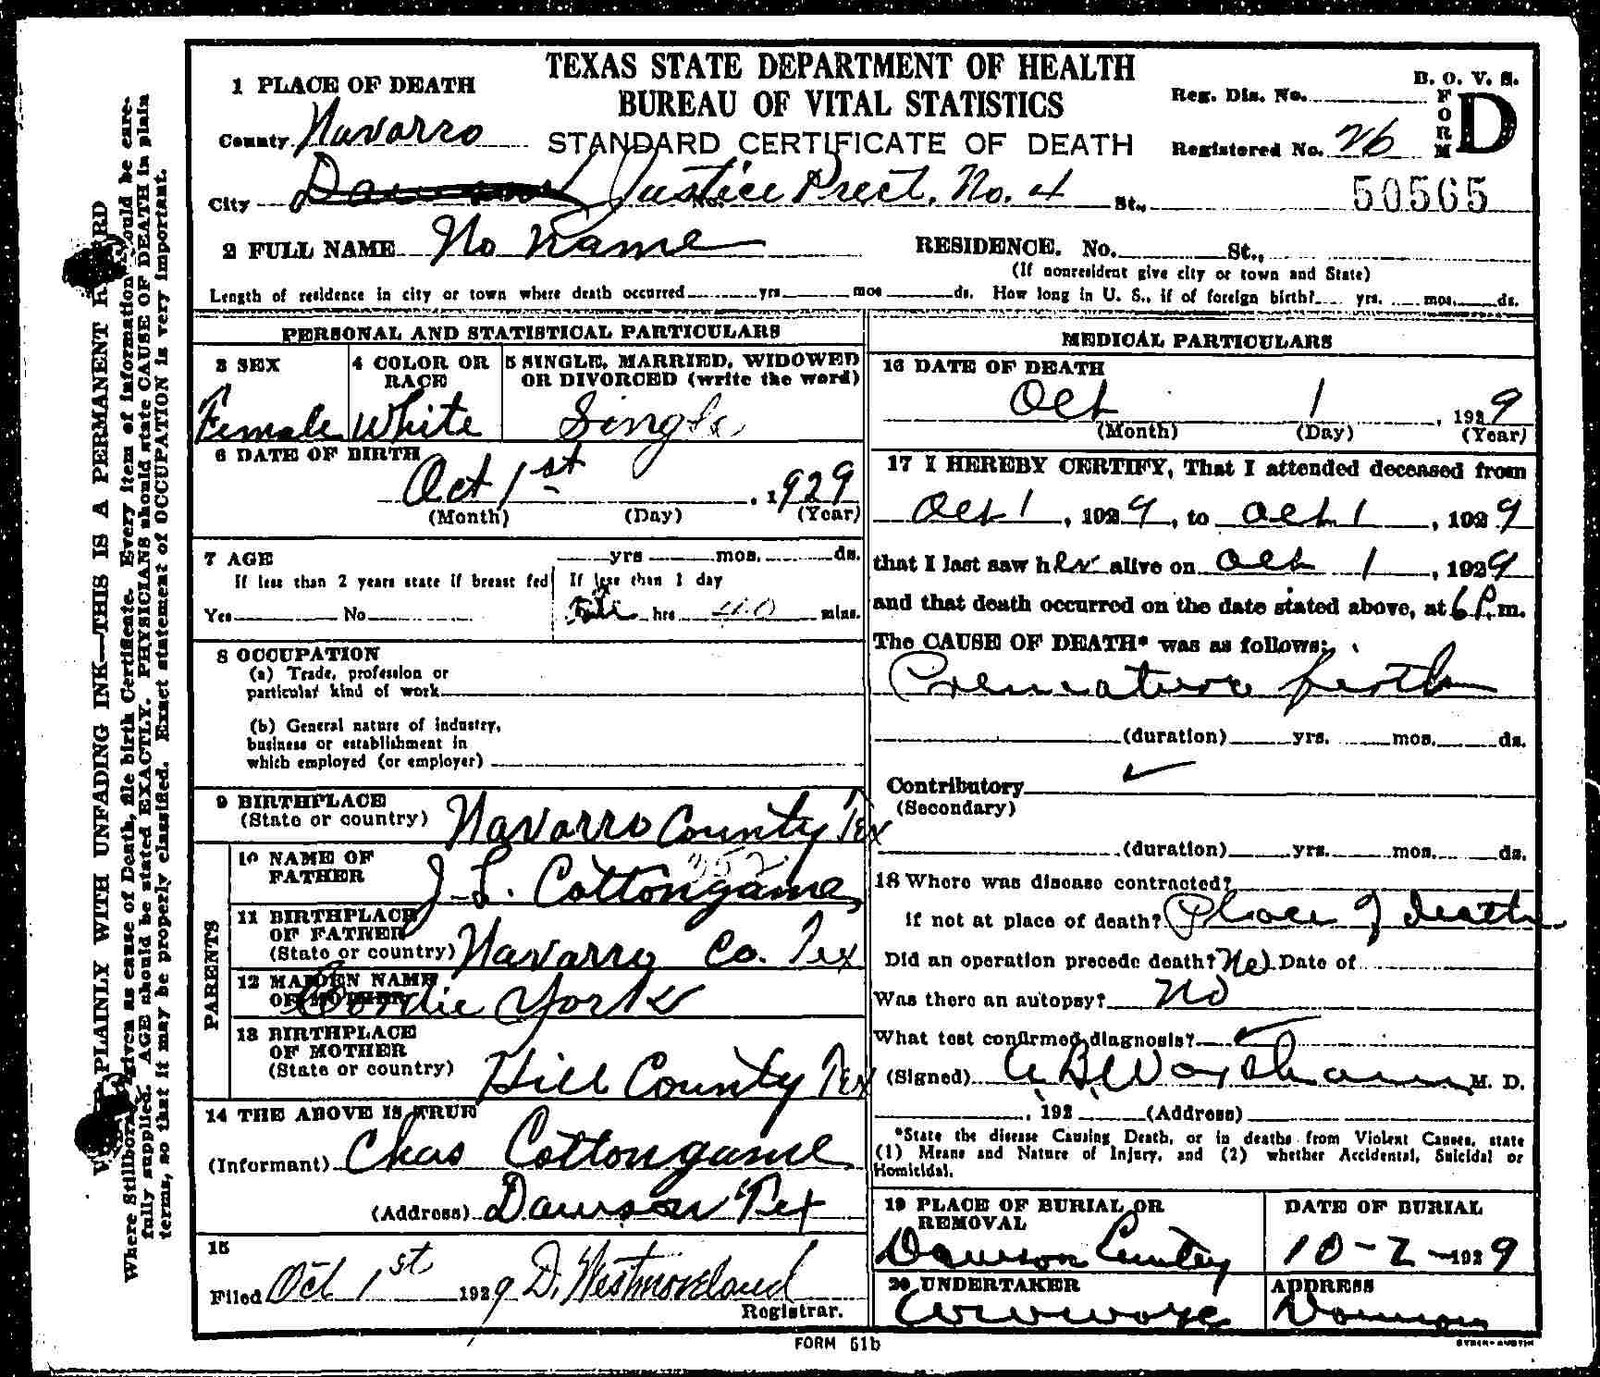 TEXAS STATE DEPARTMENT OF HEALTH
BUREAU OF VITAL STATISTICS
STANDARD CERTIFICATE OF DEATH
B. O. V. S.
FORM D
Reg. Dis. No.
Registered No. 26
50565
1 PLACE OF DEATH
County Navarro
City Dawson Justice Prect. No. 4 St.,
2 FULL NAME No Name
RESIDENCE. No. St.,
(If nonresident give city or town and State)
Length of residence in city or town where death occurred yrs mos ds. How long in U. S., if of foreign birth? yrs. mos. ds.
PERSONAL AND STATISTICAL PARTICULARS
3 SEX
Female
4 COLOR OR RACE
White
5 SINGLE, MARRIED, WIDOWED
OR DIVORCED (write the word)
Single
6 DATE OF BIRTH
Oct 1st , 1929
(Month) (Day) (Year)
7 AGE yrs mos. ds.
If less than 2 years state if breast fed
Yes No
If less than 1 day
hrs 40 mins.
8 OCCUPATION
(a) Trade, profession or
particular kind of work
(b) General nature of industry,
business or establishment in
which employed (or employer)
9 BIRTHPLACE
(State or country) Navarro County Tex
PARENTS
10 NAME OF
FATHER J. L. Cottongame
11 BIRTHPLACE
OF FATHER
(State or country) Navarro Co. Tex
12 MAIDEN NAME
OF MOTHER Cordie York
13 BIRTHPLACE
OF MOTHER
(State or country) Hill County Tex
14 THE ABOVE IS TRUE
(Informant) Chas Cottongame
(Address) Dawson Tex
15
Filed Oct 1st 1929 D. Westmoreland
Registrar.
MEDICAL PARTICULARS
16 DATE OF DEATH
Oct 1 , 1929
(Month) (Day) (Year)
17 I HEREBY CERTIFY, That I attended deceased from
Oct 1 , 1929, to Oct 1 , 1929
that I last saw her alive on Oct 1 , 1929
and that death occurred on the date stated above, at 6 P. m.
The CAUSE OF DEATH* was as follows:
Premature birth
(duration) yrs. mos. ds.
Contributory
(Secondary)
(duration) yrs. mos. ds.
18 Where was disease contracted?
if not at place of death? Place of death
Did an operation precede death? No Date of
Was there an autopsy? No
What test confirmed diagnosis?
(Signed) A B Worsham M. D.
, 192 (Address)
*State the disease Causing Death, or in deaths from Violent Causes, state
(1) Means and Nature of Injury, and (2) whether Accidental, Suicidal or
Homicidal.
19 PLACE OF BURIAL OR
REMOVAL
Dawson Cemetery
DATE OF BURIAL
10-2-1929
20 UNDERTAKER
ADDRESS
Dawson
FORM 61b
PLAINLY WITH UNFADING INK—THIS IS A PERMANENT
Where Stillborn given as cause of Death, file birth Certificate. Every item of information should be care-
fully supplied. AGE should be stated EXACTLY. PHYSICIANS should state CAUSE OF DEATH in plain
terms, so that it may be properly classified. Exact statement of OCCUPATION is very important.